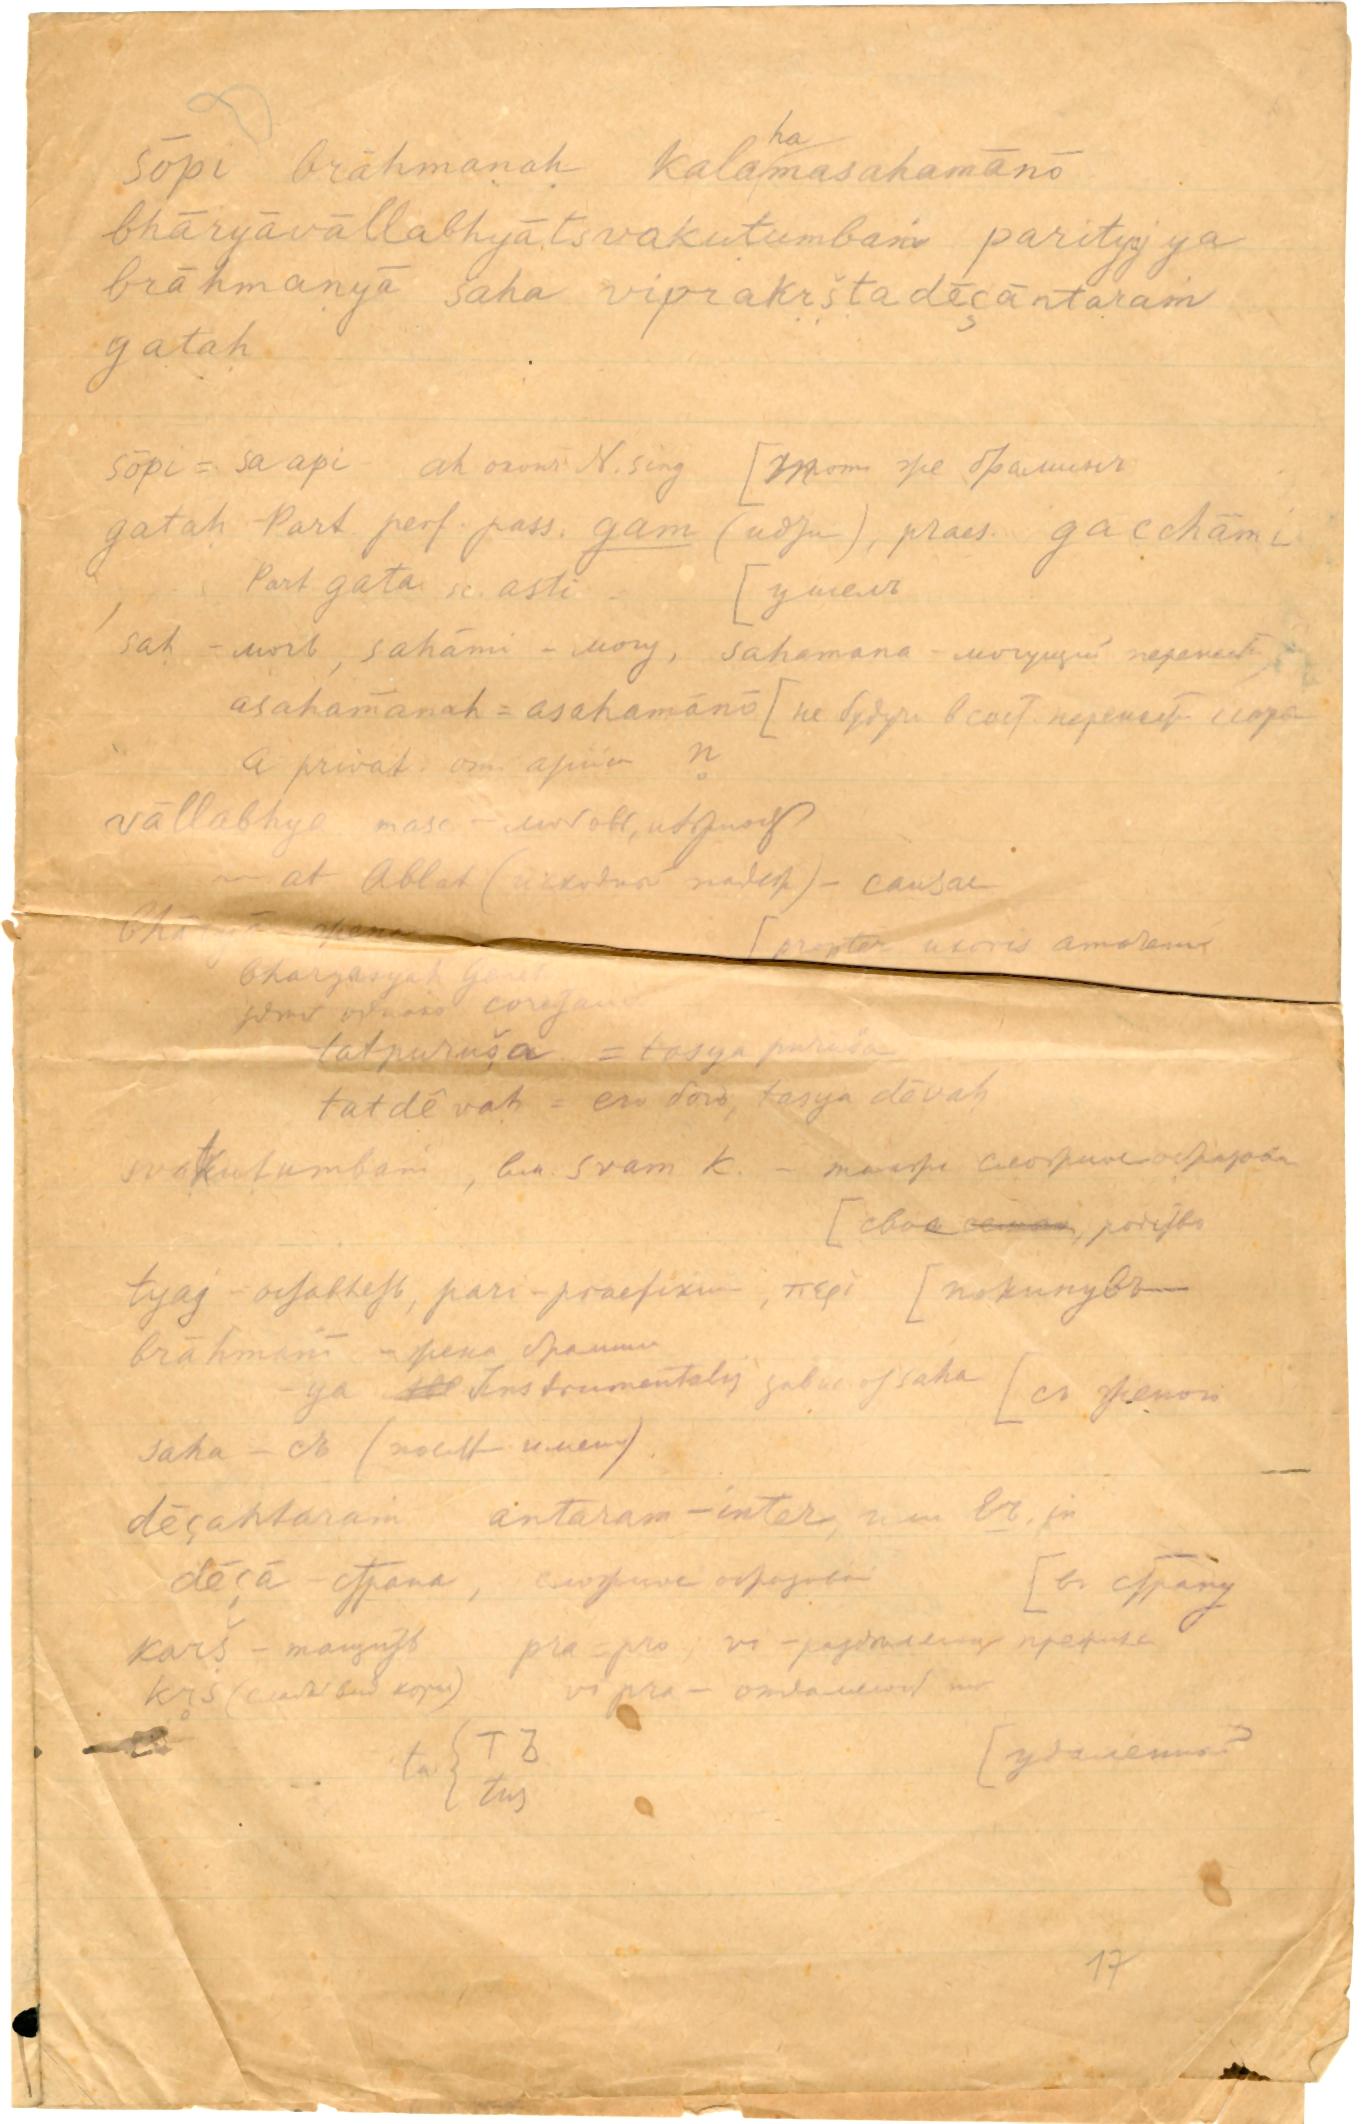 sōpi brāhmaṇaḥ kalahamasahamānō
bhāryāvāllabhyātsvakuṭumbaṁ parityajya
brāhmaṇyā saha viprakṛṣṭadēçāntaraṁ
gataḥ
sōpi = sa api aḥ оконч. N. sing [тотъ же браминъ
gataḥ - Part. perf. pass. gam (идти), praes. gacchāmi
Part gata sc. asti [ушелъ
sah - мочь, sahāmi - могу, sahamana - могущій перенести
asahamānaḥ = asahamānō [не будучи в сост. перенести
a privat. ṇ
vāllabhye masc - любовь,
āt Ablat (исходный падеж) - causae
bhāryā - жена [propter uxoris amorem
bharyasyaḥ Genet
tatpuruša = tasya puruša
tatdēvaḥ = его богъ, tasya dēvaḥ
svakuṭumbaṁ, вм. svam k. - тоже сложное образован
[свое семью, родство
tyaj - оставлять, pari - praefixum, περί [покинувъ
brāhmanī - жена брамина
-ya Instrumentalis завис от saha [съ женою
saha - съ (послѣ имени)
dēçantaraṁ antaram - inter, или въ, in
dēçā - страна, сложное образован [въ страну
karš - тащить pra = pro, vi -
kṛš (слабый вид корня) vi pra -
ta { тъ [удаленной
tus
17